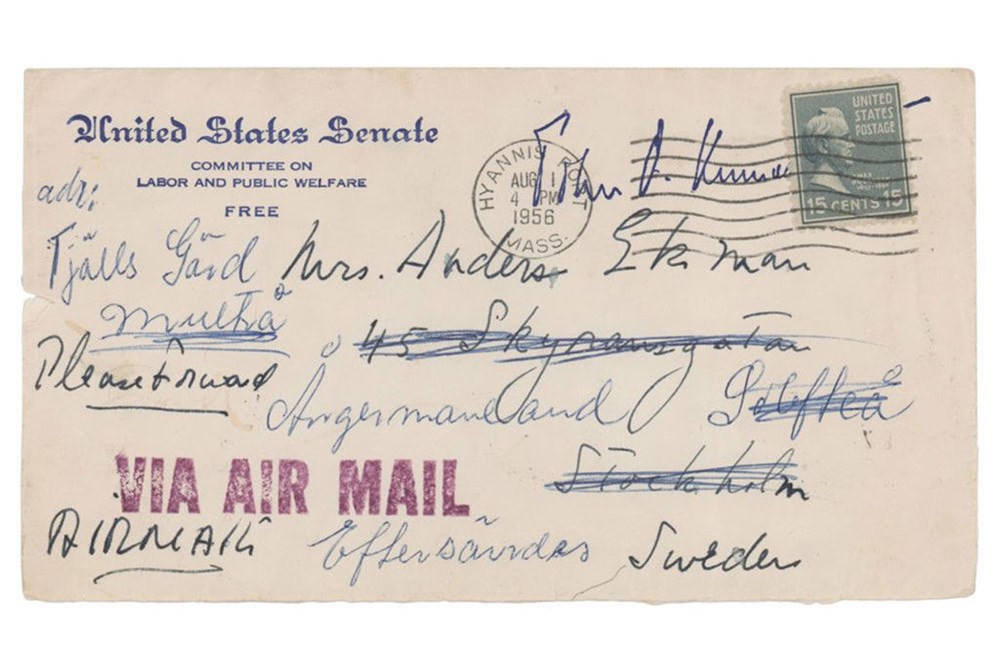 United States Senate
COMMITTEE ON
LABOR AND PUBLIC WELFARE
FREE
HYANNIS PORT
AUG 1
4 PM
1956
MASS.
UNITED
STATES
POSTAGE
15 CENTS 15
adr:
Tjälls Gård
Mrs. Anders Ekman
Multrå
45 Skyransgatan
Please Forward
Ångermaneland
Stockholm
VIA AIR MAIL
AIRMAIL
Eftersändes
Sweden